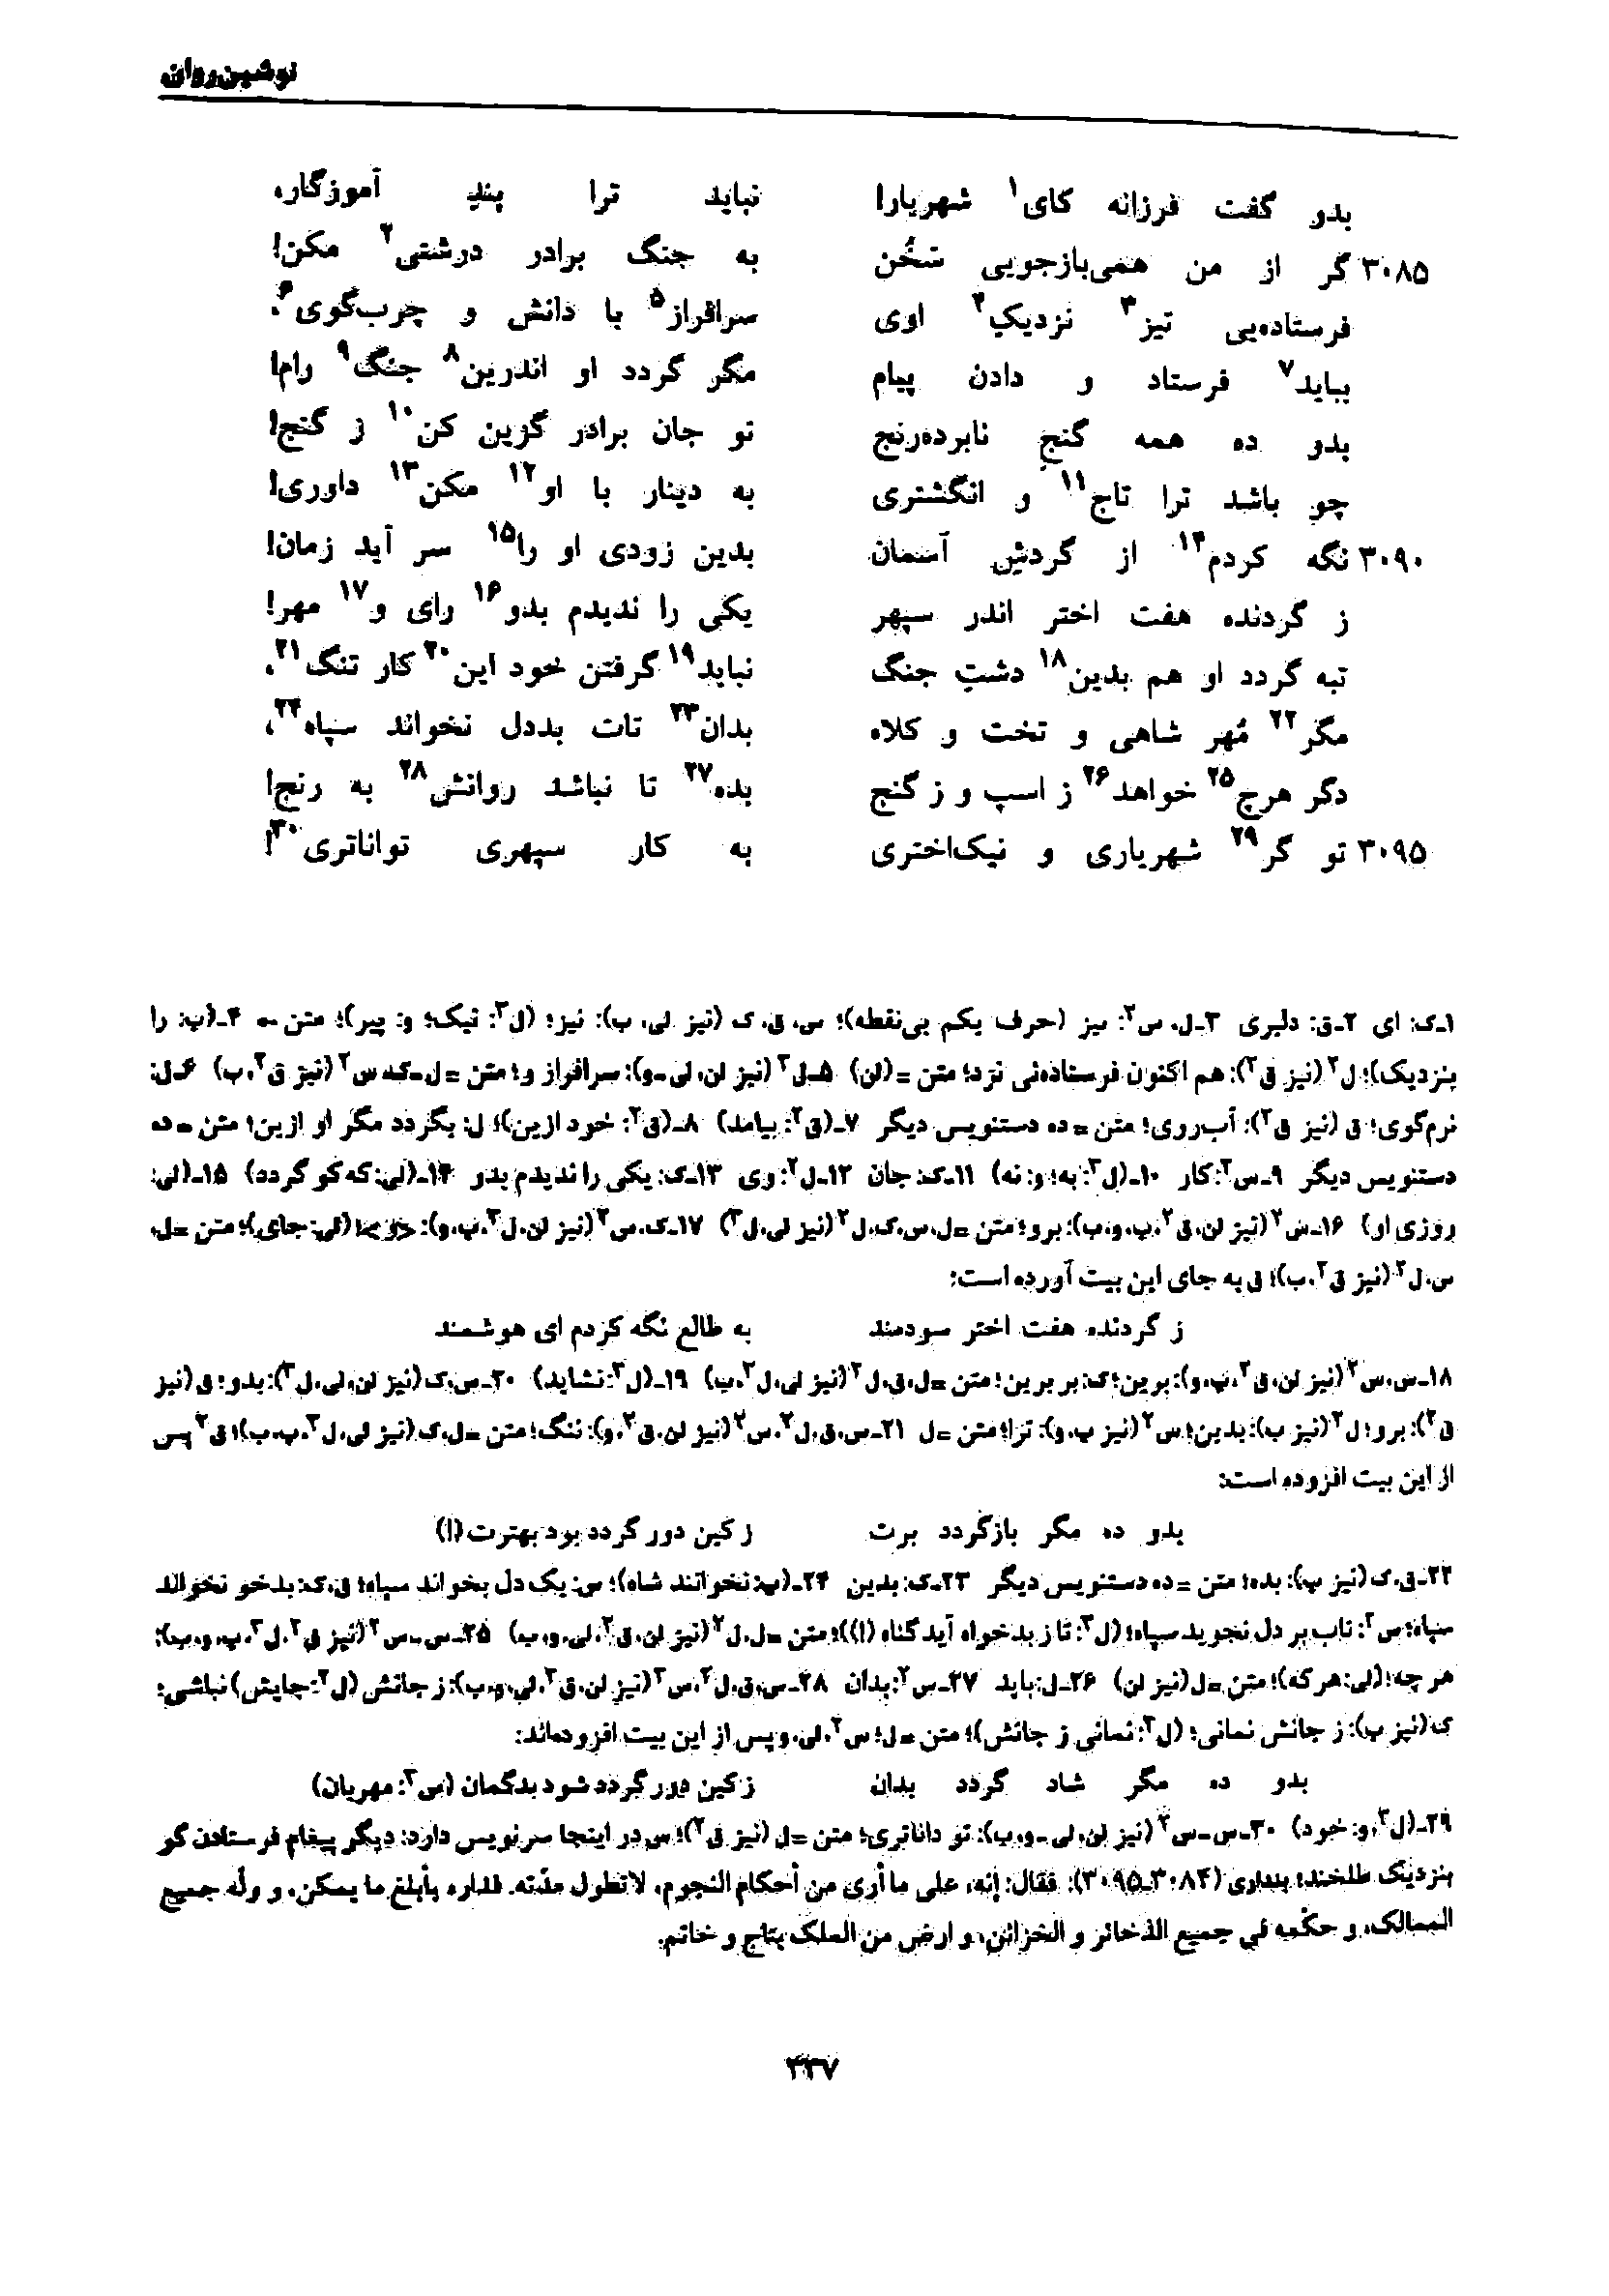 نوشین‌روان
بدو گفت فرزانه کای۱ شهریار! نباید ترا پندِ آموزگار،
۳۰۸۵ گر از من همی‌بازجویی سَخُن به جنگ برادر درشتی۲ مکن!
فرستاده‌یی تیز۳ نزدیکِ۴ اوی سرافراز۵ با دانش و چرب‌گوی۶،
بباید۷ فرستاد و دادن پیام مگر گردد او اندرین۸ جنگ۹ رام!
بدو ده همه گنجِ نابرده‌رنج تو جان برادر گزین کن۱۰ ز گنج!
چو باشد ترا تاج۱۱ و انگشتری به دینار با او۱۲ مکن۱۳ داوری!
۳۰۹۰ نگه کردم۱۴ از گردشِ آسمان بدین زودی او را۱۵ سر آید زمان!
ز گردنده هفت اختر اندر سپهر یکی را ندیدم بدو۱۶ رای و۱۷ مهر!
تبه گردد او هم بدین۱۸ دشتِ جنگ نباید۱۹ گرفتن خود این۲۰ کار تنگ۲۱،
مگر۲۲ مُهر شاهی و تخت و کلاه بدان۲۳ تات بددل نخواند سپاه۲۴،
دگر هرچ۲۵ خواهد۲۶ ز اسپ و ز گنج بده۲۷ تا نباشد روانش۲۸ به رنج!
۳۰۹۵ تو گر۲۹ شهریاری و نیک‌اختری به کار سپهری تواناتری۳۰!
۱ـک: ای ۲ـق: دلیری ۳ـل، س۲: ىیز (حرف یکم بی‌نقطه)؛ س، ق، ک (نیز لی، ب): نیز؛ (ل۳: نیک؛ و: پیر)؛ متن ← ۴ـ(پ: را
بنزدیک)؛ ل۲ (نیز ق۲): هم اکنون فرستاده‌ئی نزد؛ متن = (لن) ۵ـل۲ (نیز لن، لی ـ و): سرافراز و؛ متن = ل ـ ک، س۲ (نیز ق۲، ب) ۶ـل:
نرم‌گوی؛ ق (نیز ق۲): آب‌روی؛ متن = ده دستنویس دیگر ۷ـ(ق۲: بیامد) ۸ـ(ق۲: خود ازین)؛ ل: بگردد مگر او ازین؛ متن = ده
دستنویس دیگر ۹ـس۲: کار ۱۰ـ(ل۳: به؛ و: نه) ۱۱ـک: جان ۱۲ـل۲: وی ۱۳ـک: یکی را ندیدم بدو ۱۴ـ(لی: که کو گردد) ۱۵ـ(لی:
روزی او) ۱۶ـس۲ (نیز لن، ق۲، پ، و، ب): برو؛ متن = ل، س، ک، ل۲ (نیز لی، ل۳) ۱۷ـک، س۲ (نیز لن، ل۳، پ، و): (لی: جای)؛ متن = ل،
س، ل۲ (نیز ق۲، ب)؛ ق به جای این بیت آورده است:
ز گردنده هفت اختر سودمند به طالع نگه کردم ای هوشمند
۱۸ـس، س۲ (نیز لن، ق۲، پ، و): برین؛ ک: بر برین؛ متن = ل، ق، ل۲ (نیز لی، ل۳، ب) ۱۹ـ(ل۳: نشاید) ۲۰ـس، ک (نیز لن، لی، ل۳): بدو؛ ق (نیز
ق۲): برو؛ ل۲ (نیز ب): بدین؛ س۲ (نیز پ، و): ترا؛ متن = ل ۲۱ـس، ق، ل۲، س۲ (نیز لن، ق۲، و): ننگ؛ متن = ل، ک (نیز لی، ل۳، پ، ب)؛ ق۲ پس
از این بیت افزوده است:
بدو ده مگر بازگردد برت ز کین دور گردد بود بهترت (!)
۲۲ـق، ک (نیز پ): بده؛ متن = ده دستنویس دیگر ۲۳ـک: بدین ۲۴ـ(پ: نخوانند شاه)؛ س: یک دل بخواند سپاه؛ ق، ک: بدخو نخواند
سپاه؛ س۲: تاب بر دل نجوید سپاه؛ (ل۳: تا ز بدخواه آید گناه (!))؛ متن = ل، ل۲ (نیز لن، ق۲، لی، و، ب) ۲۵ـس ـ س۲ (نیز ق۲، ل۳، پ، و، ب):
هر چه؛ (لی: هر که)؛ متن = ل (نیز لن) ۲۶ـل: باید ۲۷ـس۲: بدان ۲۸ـس، ق، ل۲، س۲ (نیز لن، ق۲، لی، و، ب): ز جانش (ل۳: جایش) نباشی؛
ک (نیز پ): ز جانش نمانی؛ (ل۳: نمانی ز جانش)؛ متن = ل؛ س۲، لی، و پس از این بیت افزوده‌اند:
بدو ده مگر شاد گردد بدان ز کین دور گردد شود بدگمان (س۲: مهربان)
۲۹ـ(ل۳، و: خود) ۳۰ـس ـ س۲ (نیز لن، لی ـ و، ب): تو داناتری؛ متن = ل (نیز ق۲)؛ س در اینجا سرنویس دارد: دیگر پیغام فرستادن گو
بنزدیک طلخند؛ بنداری (۳۰۸۴ـ۳۰۹۵): فقال: إنه، علی ما أری من أحکام النجوم، لاتطول مدّته. فداره بأبلغ ما یمکن، و ولّه جمیع
الممالک، و حکّمه فی جمیع الذخائر و الخزائن، و ارض من الملک بتاج و خاتم.
۳۳۷